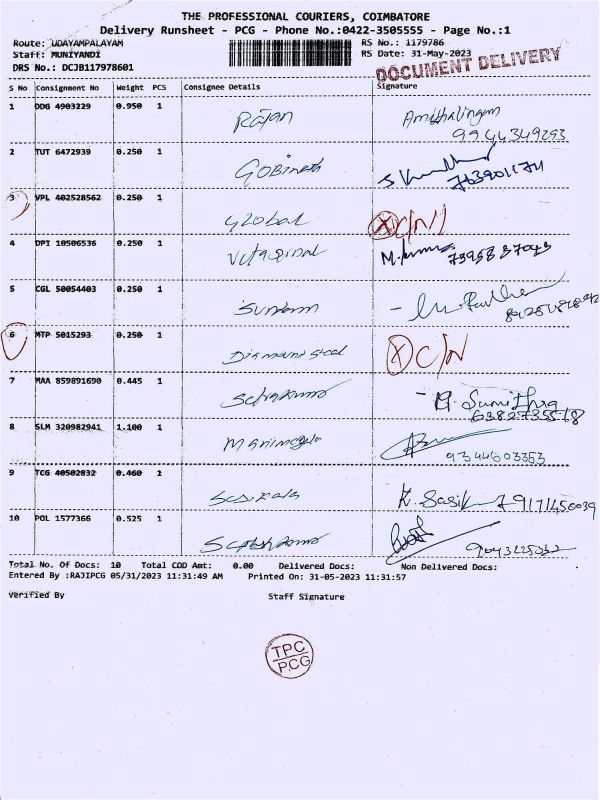 THE PROFESSIONAL COURIERS, COIMBATORE
Delivery Runsheet - PCG - Phone No.:0422-3505555 - Page No.:1
Route: UDAYAMPALAYAM RS No.: 1179786
Staff: MUNIYANDI RS Date: 31-May-2023
DRS No.: DCJB117978601
DOCUMENT DELIVERY
S No Consignment No Weight PCS Consignee Details Signature
1 DDG 4903229 0.950 1 Rajan
9944349293
2 TUT 6472939 0.250 1 Gobinath
3 VPL 402528562 0.250 1 Global X C/N
4 DPI 10506536 0.250 1
5 CGL 50054403 0.250 1 Sundaram
6 MTP 5015293 0.250 1 Diamond Steel X C/N
7 MAA 859891690 0.445 1 Sumithra
6382735568
8 SLM 320982941 1.100 1
9344603353
9 TCG 40502832 0.460 1 Sasikala K. Sasik
10 POL 1577366 0.525 1
Total No. Of Docs: 10 Total COD Amt: 0.00 Delivered Docs: Non Delivered Docs:
Entered By :RAJIPCG 05/31/2023 11:31:49 AM Printed On: 31-05-2023 11:31:57
Verified By Staff Signature
TPC
PCG